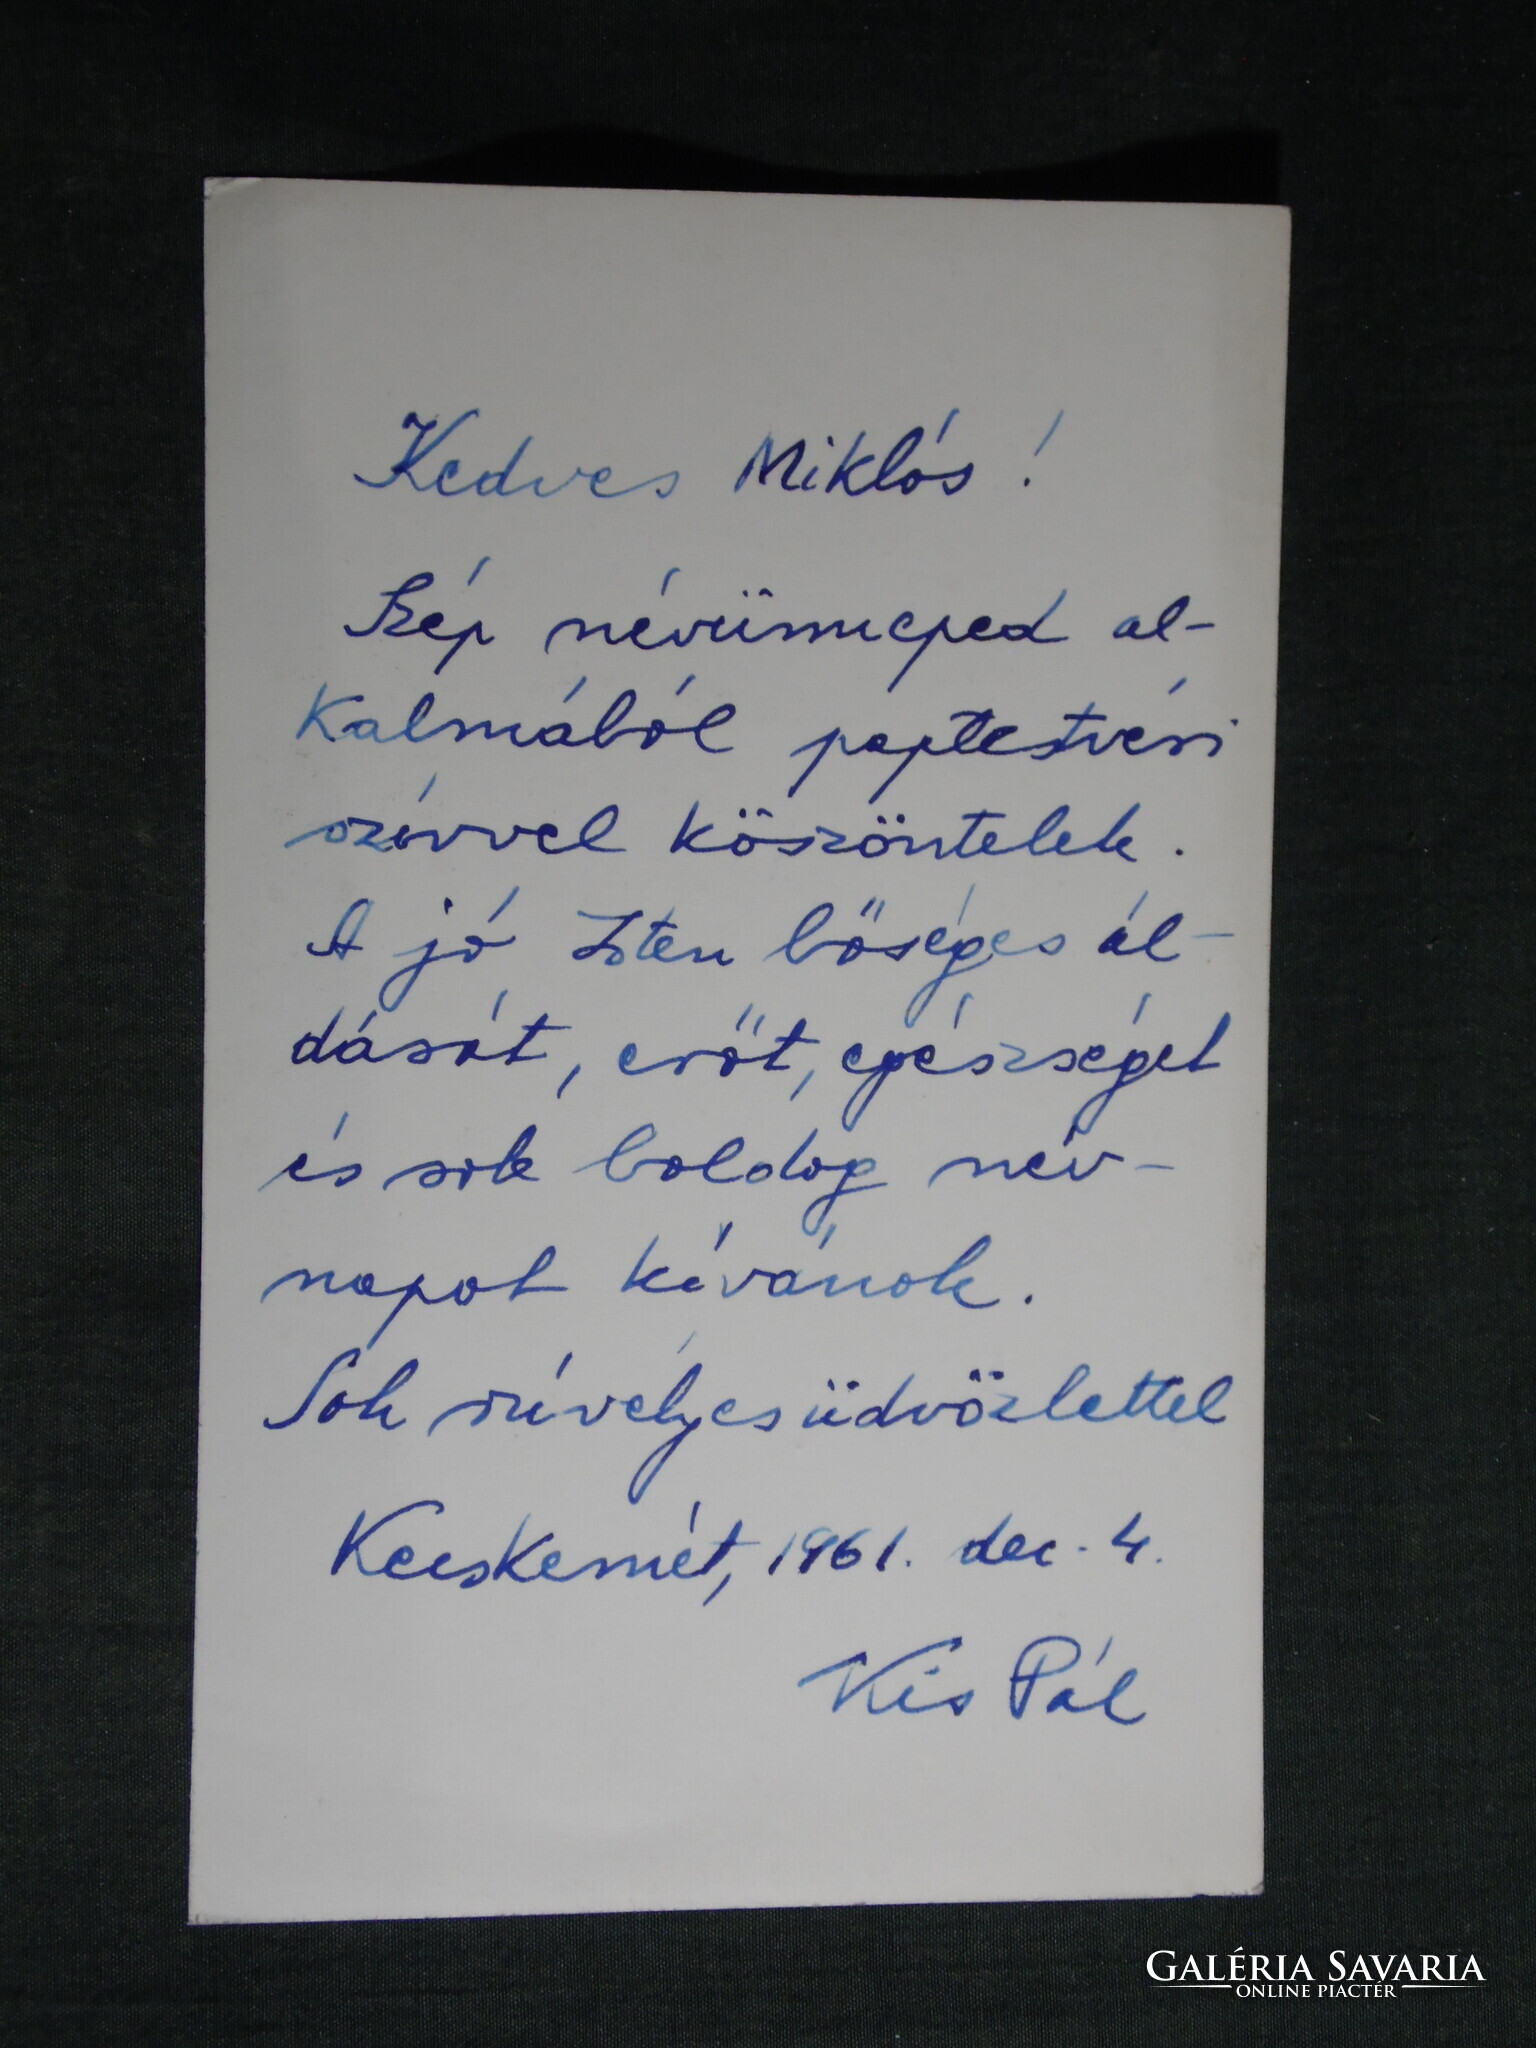 Kedves Miklós!
Szép névünneped al-
kalmából paptestvéri
szívvel köszöntelek.
A jó Isten bőséges ál-
dását, erőt, egészséget
és sok boldog név-
napot kívánok.
Sok szívélyes üdvözlettel
Kecskemét, 1961. dec. 4.
Kis Pál
GALÉRIA SAVARIA
ONLINE PIACTÉR